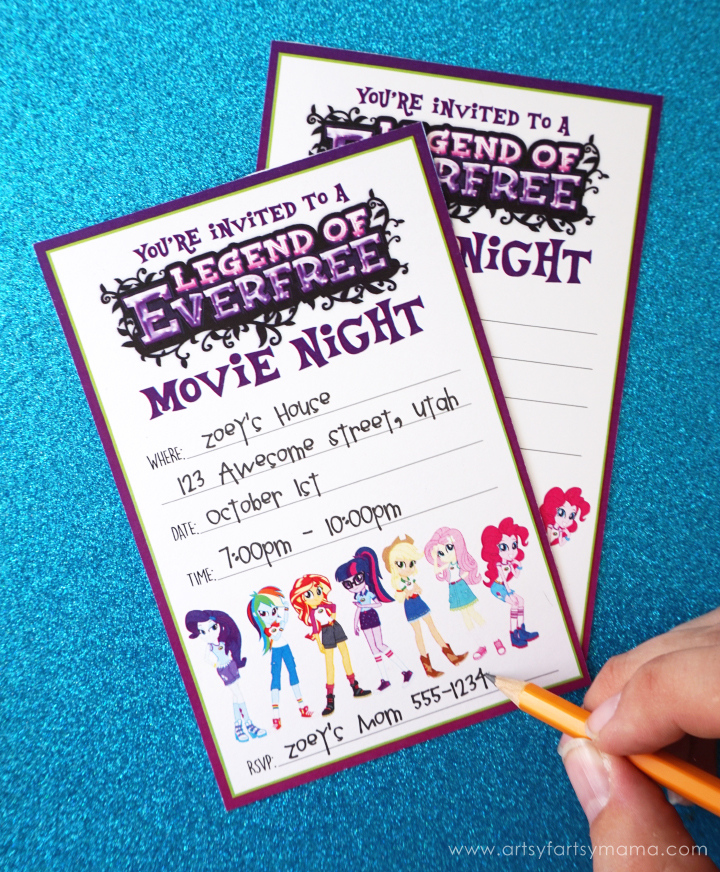 YOU'RE INVITED TO A
LEGEND OF
EVERFREE
MOVIE NIGHT
WHERE: Zoey's House
123 Awesome Street, Utah
DATE: October 1st
TIME: 7:00pm - 10:00pm
RSVP: Zoey's Mom 555-1234
YOU'RE INVITED TO A
LEGEND OF
EVERFREE
NIGHT
www.artsyfartsymama.com